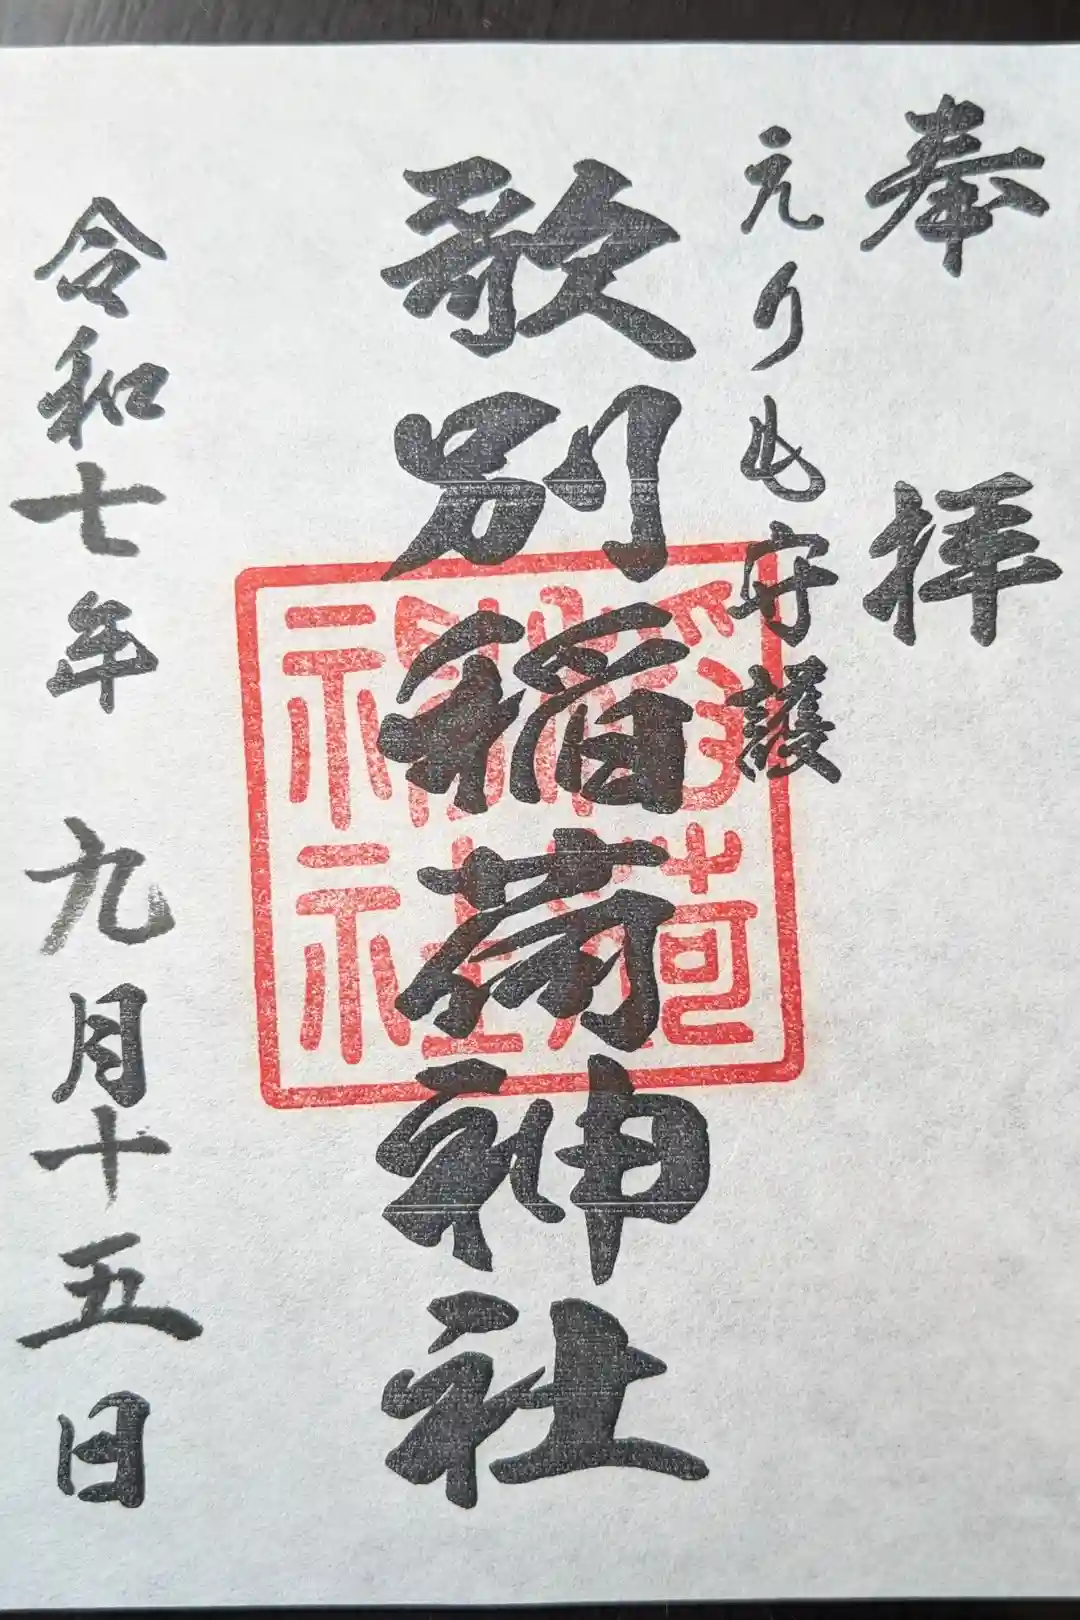 奉拝
えりも守護
歌別稲荷神社
令和七年九月十五日